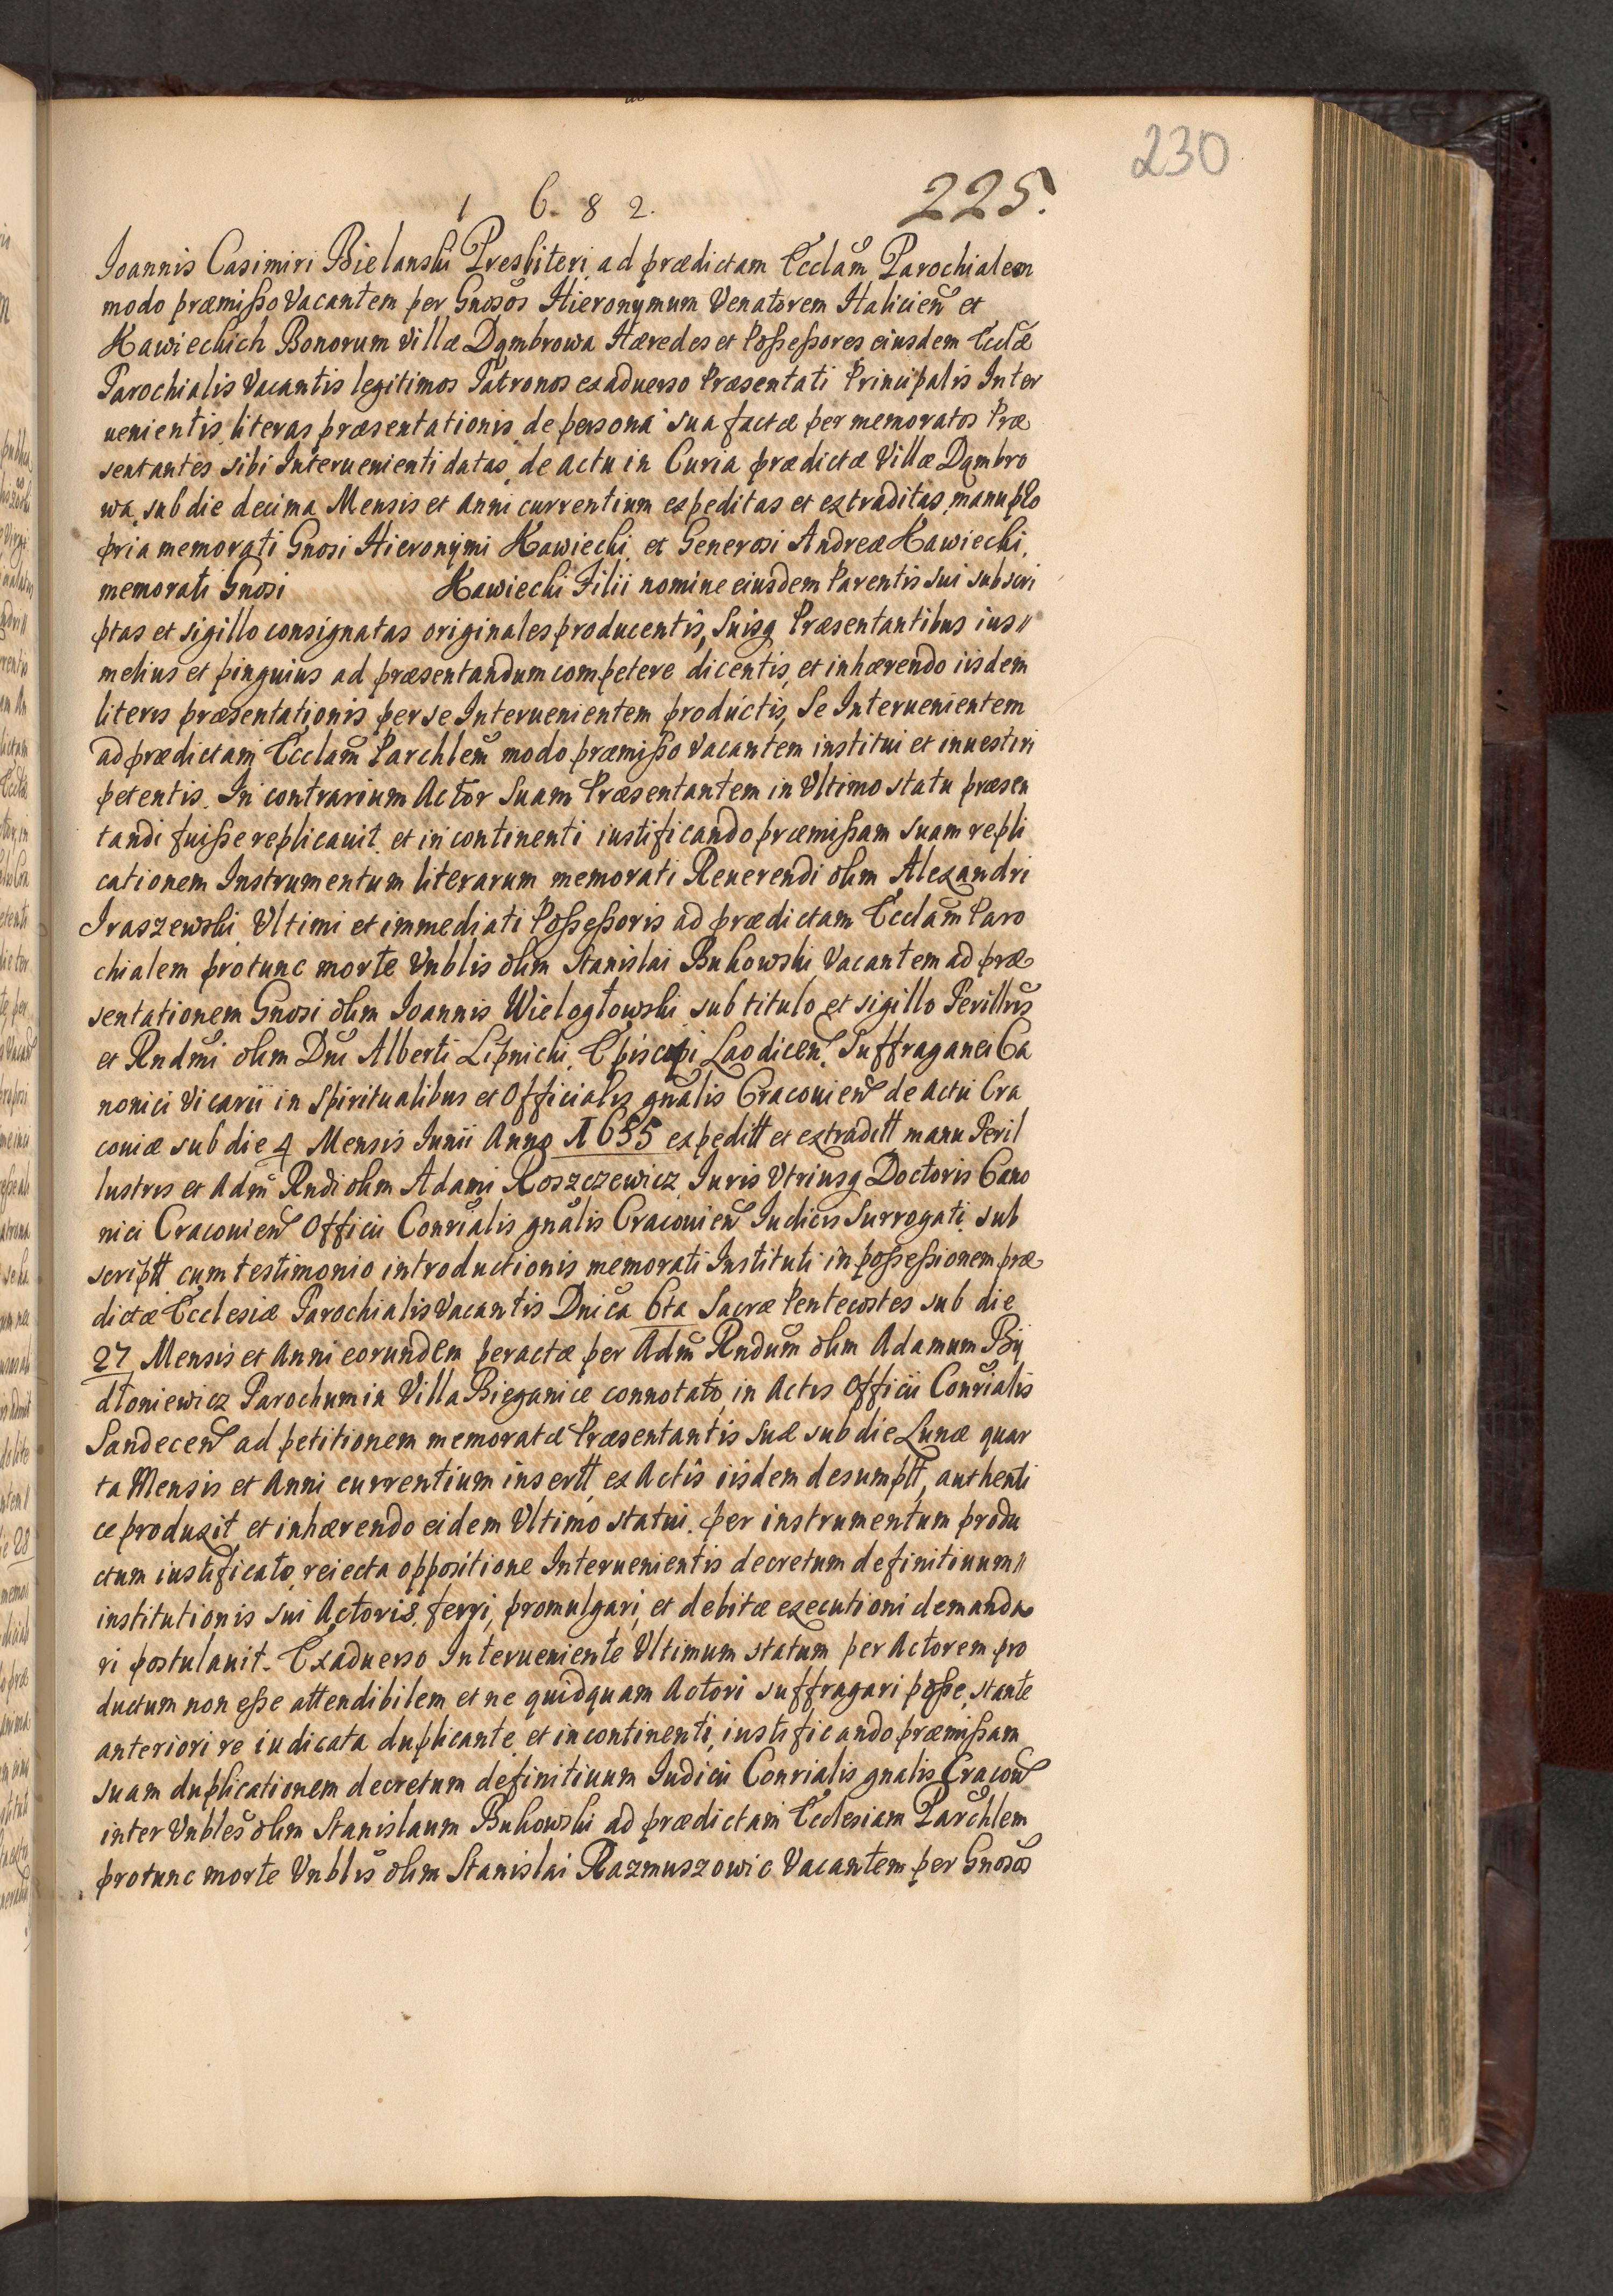 230
1 6. 8 2. 225.
Joannis Casimiri Bielanski Presbiteri ad prædictam Ecclam̃ Parochialem
modo præmisso Vacantem per Gnosos Hieronymum Venatorem Halicień et
Kawieckich Bonorum Villæ Dąmbrowa Hæredes et Possessores eiusdem Ecclæ
Parochialis Vacantis legitimos Patronos exaduerso Præsentati Principalis Inter
uenientis literas præsentationis de persona sua factæ per memoratos Præ
sentantes sibi Interuenienti datas, de actu in Curia prædictæ Villæ Dąmbro
wa, sub die decima Mensis et Anni currentium expeditas et extraditas, manu pro
pria memorati Gnosi Hieronymi Kawiecki, et Generosi Andreæ Kawiecki,
memorati Gnosi Kawiecki Filii nomine eiusdem Parentis sui subscri
ptas et sigillo consignatas originales producentis, Suisq Præsentantibus ius
melius et pinguius ad præsentandum competere dicentis, et inhærendo iisdem
literis præsentationis per se Interuenientem productis, Se Interuenientem
ad prædictam Ecclam̃ Parchlem̃ modo præmisso Vacantem institui et inuestiri
petentis. In contrarium Actor Suam Præsentantem in Vltimo statu præsen
tandi fuisse replicauit, et in continenti iustificando præmissam suam repli
cationem Instrumentum literarum memorati Reuerendi olim Alexandri
Iraszewski Vltimi et immediati Possessoris ad prædictam Ecclam̃ Paro
chialem protunc morte Vnblis olim Stanislai Bukowski Vacantem ad præ
sentationem Gnosi olim Ioannis Wielogłowski sub titulo et sigillo Perillris
et Rndmi olim Dni Alberti Lipnicki, Episcopi Laodicen̄ Suffraganei Ca
nonici Vicarii in Spiritualibus et Officialis gnalis Cracouien̄ de Actu Cra
couiæ sub die 4 Mensis Iunii Anno 1655 expeditt et extraditt manu Peril
lustris et Adm̃ Rndi olim Adami Roszczewicz, Iuris Vtriusq Doctoris Cano
nici Cracouien̄ Officii Conrialis gnalis Cracouien̄ Iudicis Surrogati, sub
scriptt cum testimonio introductionis memorati Instituti in possessionem præ
dictæ Ecclesiæ Parochialis Vacantis Dnica 6ta Sacræ Pentecostes sub die
27 Mensis et Anni eorundem peractæ per Adm̃ Rndum olim Adamum By
dłoniewicz Parochum in Villa Bieganice connotato, in Actis Officii Conrialis
Sandecen̄ ad petitionem memoratæ Præsentantis Suæ sub die Lunæ quar
ta Mensis et Anni currentium insertt, ex Actis iisdem desumptt, authenti
ce produxit et inhærendo eidem Vltimo statui, per instrumentum produ
ctum iustificato, reiecta oppositione Interuenientis decretum definitiuum
institutionis sui Actoris, ferri, promulgari, et debitæ executioni demanda
ri postulauit. Exaduerso Interueniente Vltimum statum per Actorem pro
ductum non esse attendibilem et ne quidquam Actori suffragari posse, stante
anteriori re iudicata duplicante et incontinenti, iustificando præmissam
suam duplicationem decretum definitiuum Iudicii Conrialis gnalis Cracou̅
inter Vnbles olim Stanislaum Bukowski ad prædictam Ecclesiam Parchlem
protunc morte Vnblis olim Stanislai Razmuszowic Vacantem per Gnosos